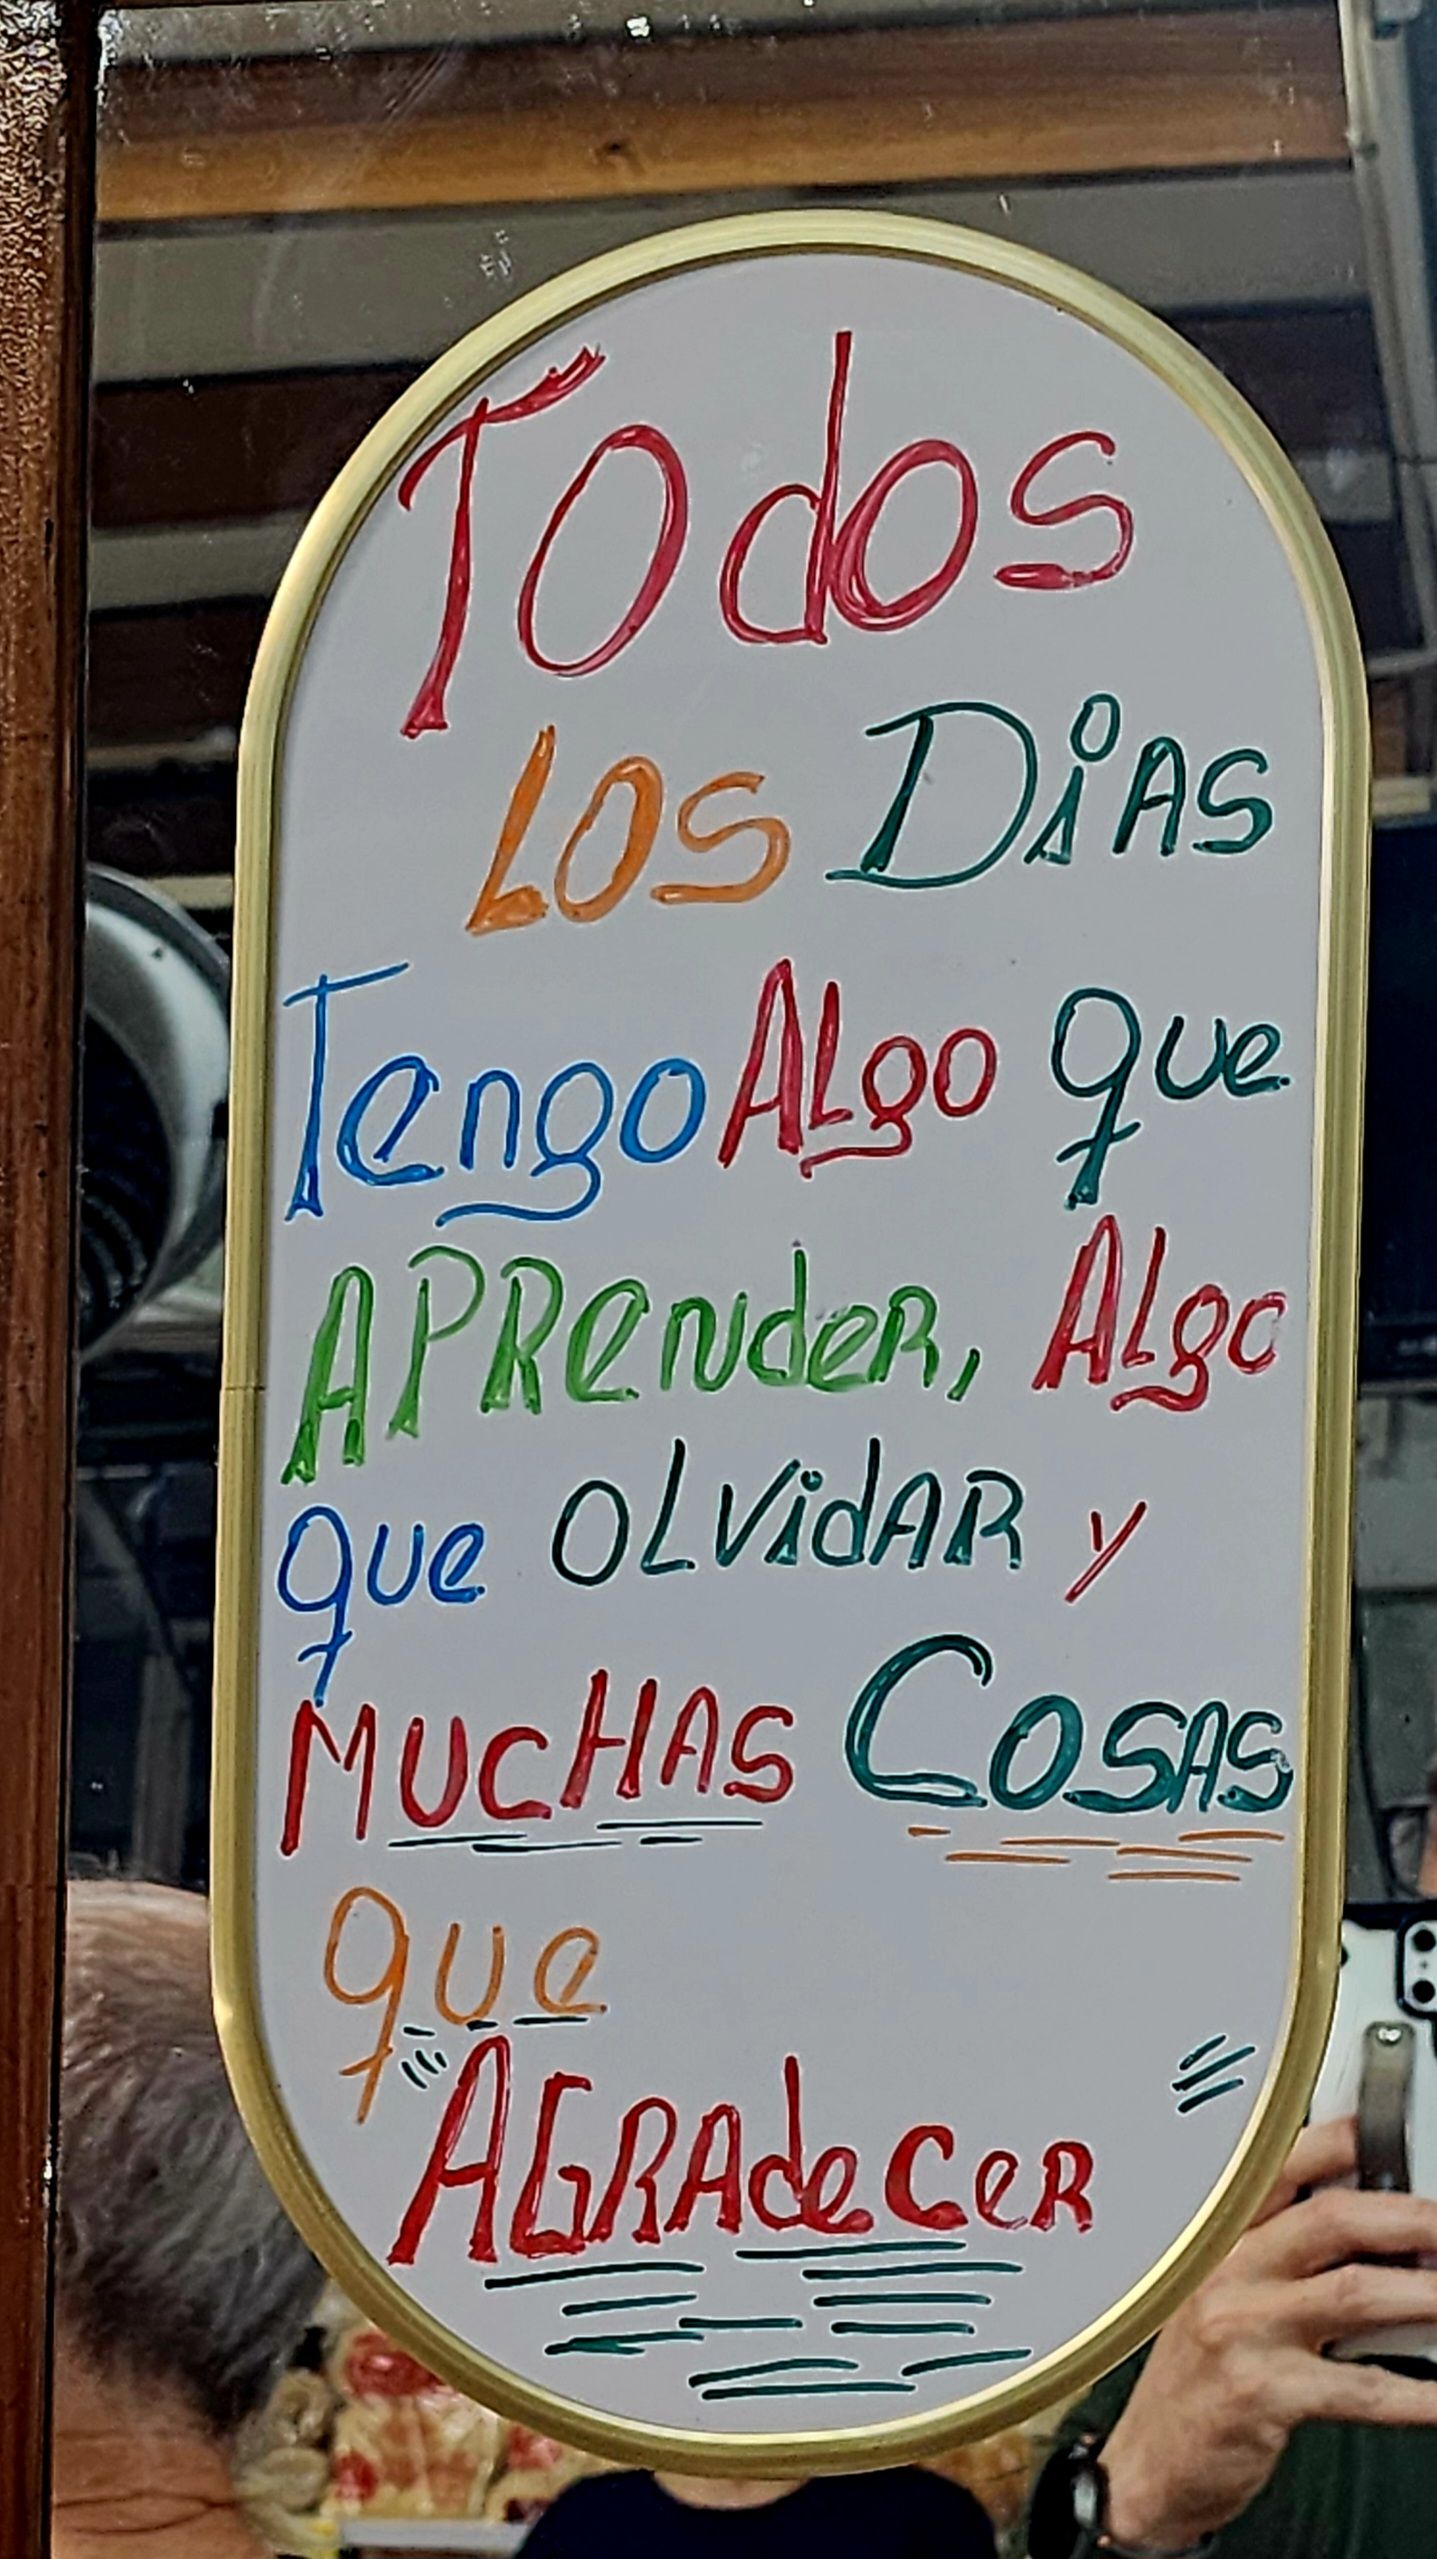 Todos
LOS DiAS
Tengo ALgo que
APRender, ALgo
que OLVidAR y
MUCHAS COSAS
que
AGRAdeCeR